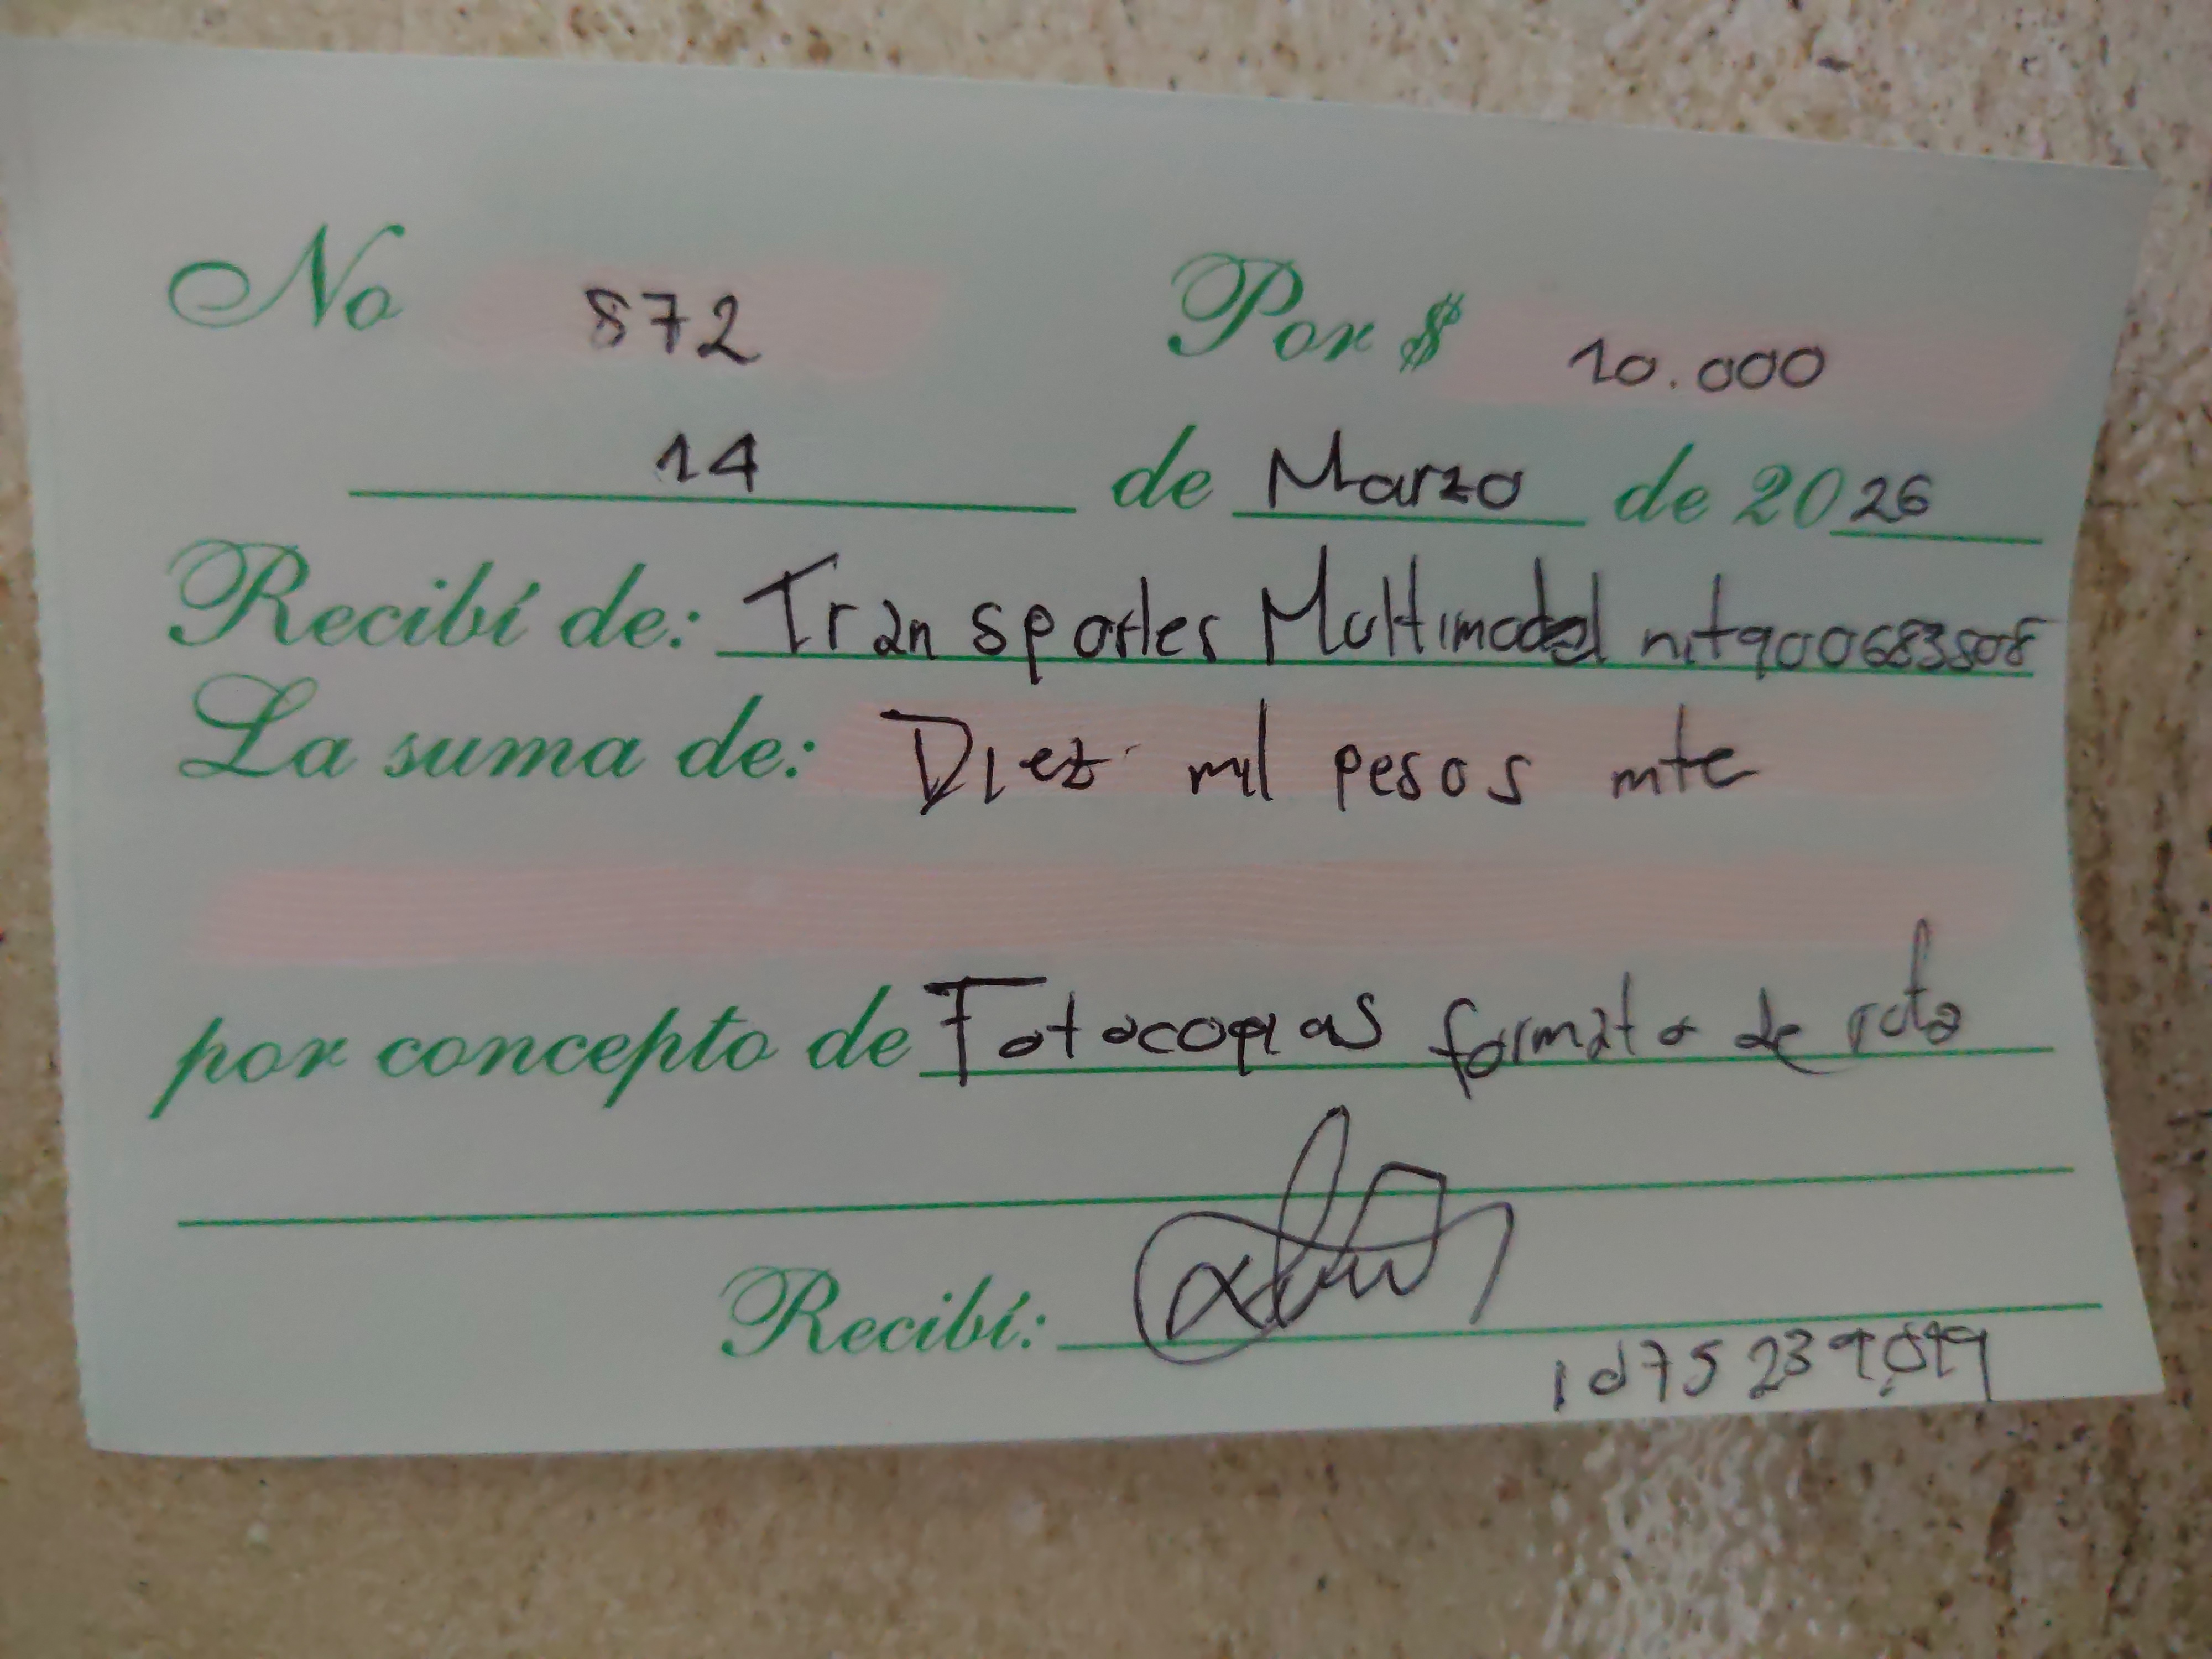 No 872 Por $ 10.000
14 de Marzo de 2026
Recibí de: Transportes Multimodal nit900683808
La suma de: Diez mil pesos mte
por concepto de Fotocopias formato de ruta
Recibí: